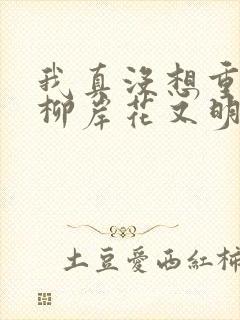 我真沒想重
柳岸花又明
土豆愛西紅柿